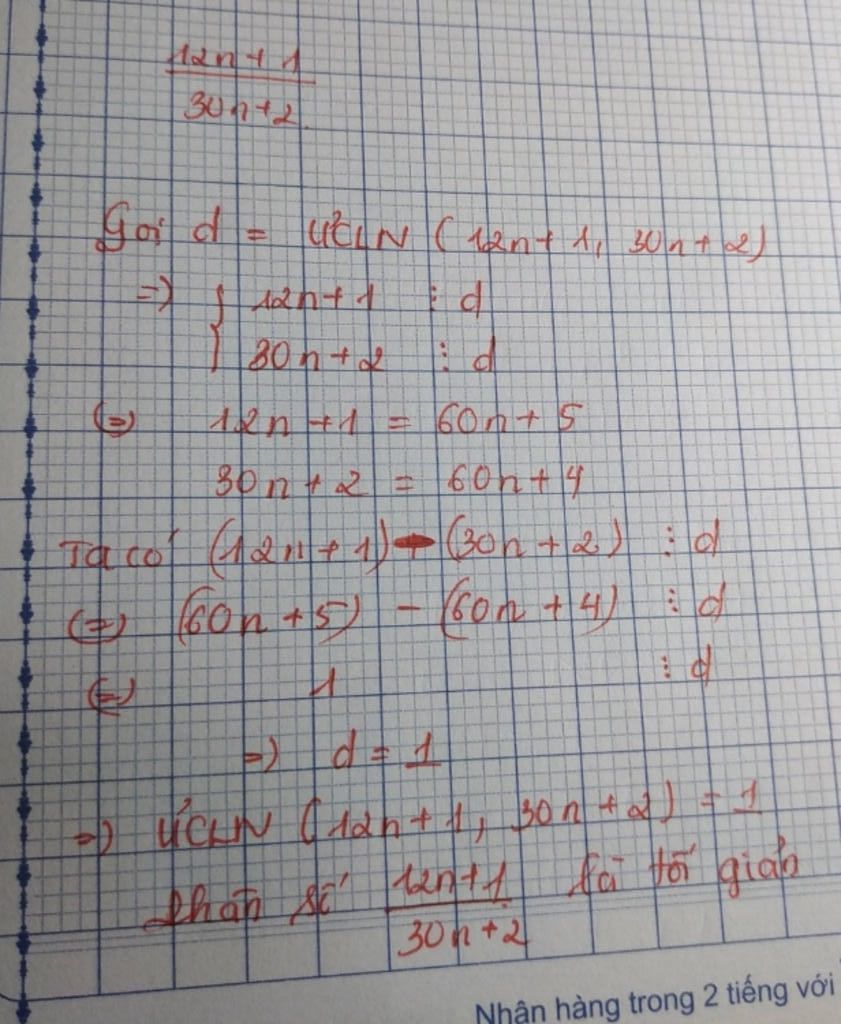 12n + 1
30n + 2
Gọi d = ƯCLN (12n + 1, 30n + 2)
=> { 12n + 1 ⋮ d
30n + 2 ⋮ d
(=) 12n + 1 = 60n + 5
30n + 2 = 60n + 4
Ta có (12n + 1) - (30n + 2) ⋮ d
(=) (60n + 5) - (60n + 4) ⋮ d
(=) 1 ⋮ d
=) d = 1
=) ƯCLN (12n + 1, 30n + 2) = 1
phân số 12n + 1 / 30n + 2 là tối giản
Nhận hàng trong 2 tiếng với